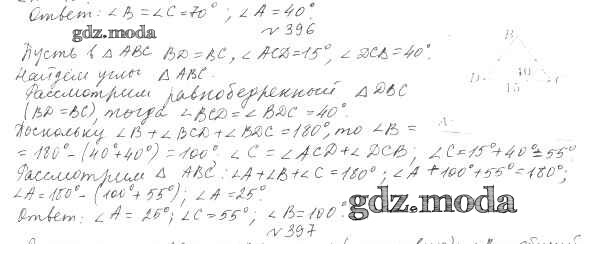 Ответ: ∠B = ∠C = 70°; ∠A = 40°.
gdz.moda
№ 396
Пусть в △ ABC BD = BC, ∠ ACD = 15°, ∠ DCB = 40°.
Найдём углы △ ABC.
Рассмотрим равнобедренный △ DBC
(BD = BC), тогда ∠ BCD = ∠ BDC = 40°.
Поскольку ∠ B + ∠ BCD + ∠ BDC = 180°, то ∠ B =
= 180° - (40° + 40°) = 100°, ∠ C = ∠ ACD + ∠ DCB; ∠ C = 15° + 40° = 55°
Рассмотрим △ ABC: ∠A + ∠B + ∠C = 180°; ∠A + 100° + 55° = 180°;
∠A = 180° - (100° + 55°); ∠A = 25°.
Ответ: ∠A = 25°; ∠C = 55°; ∠B = 100°.
gdz.moda
№ 397
B
D
40
15
A